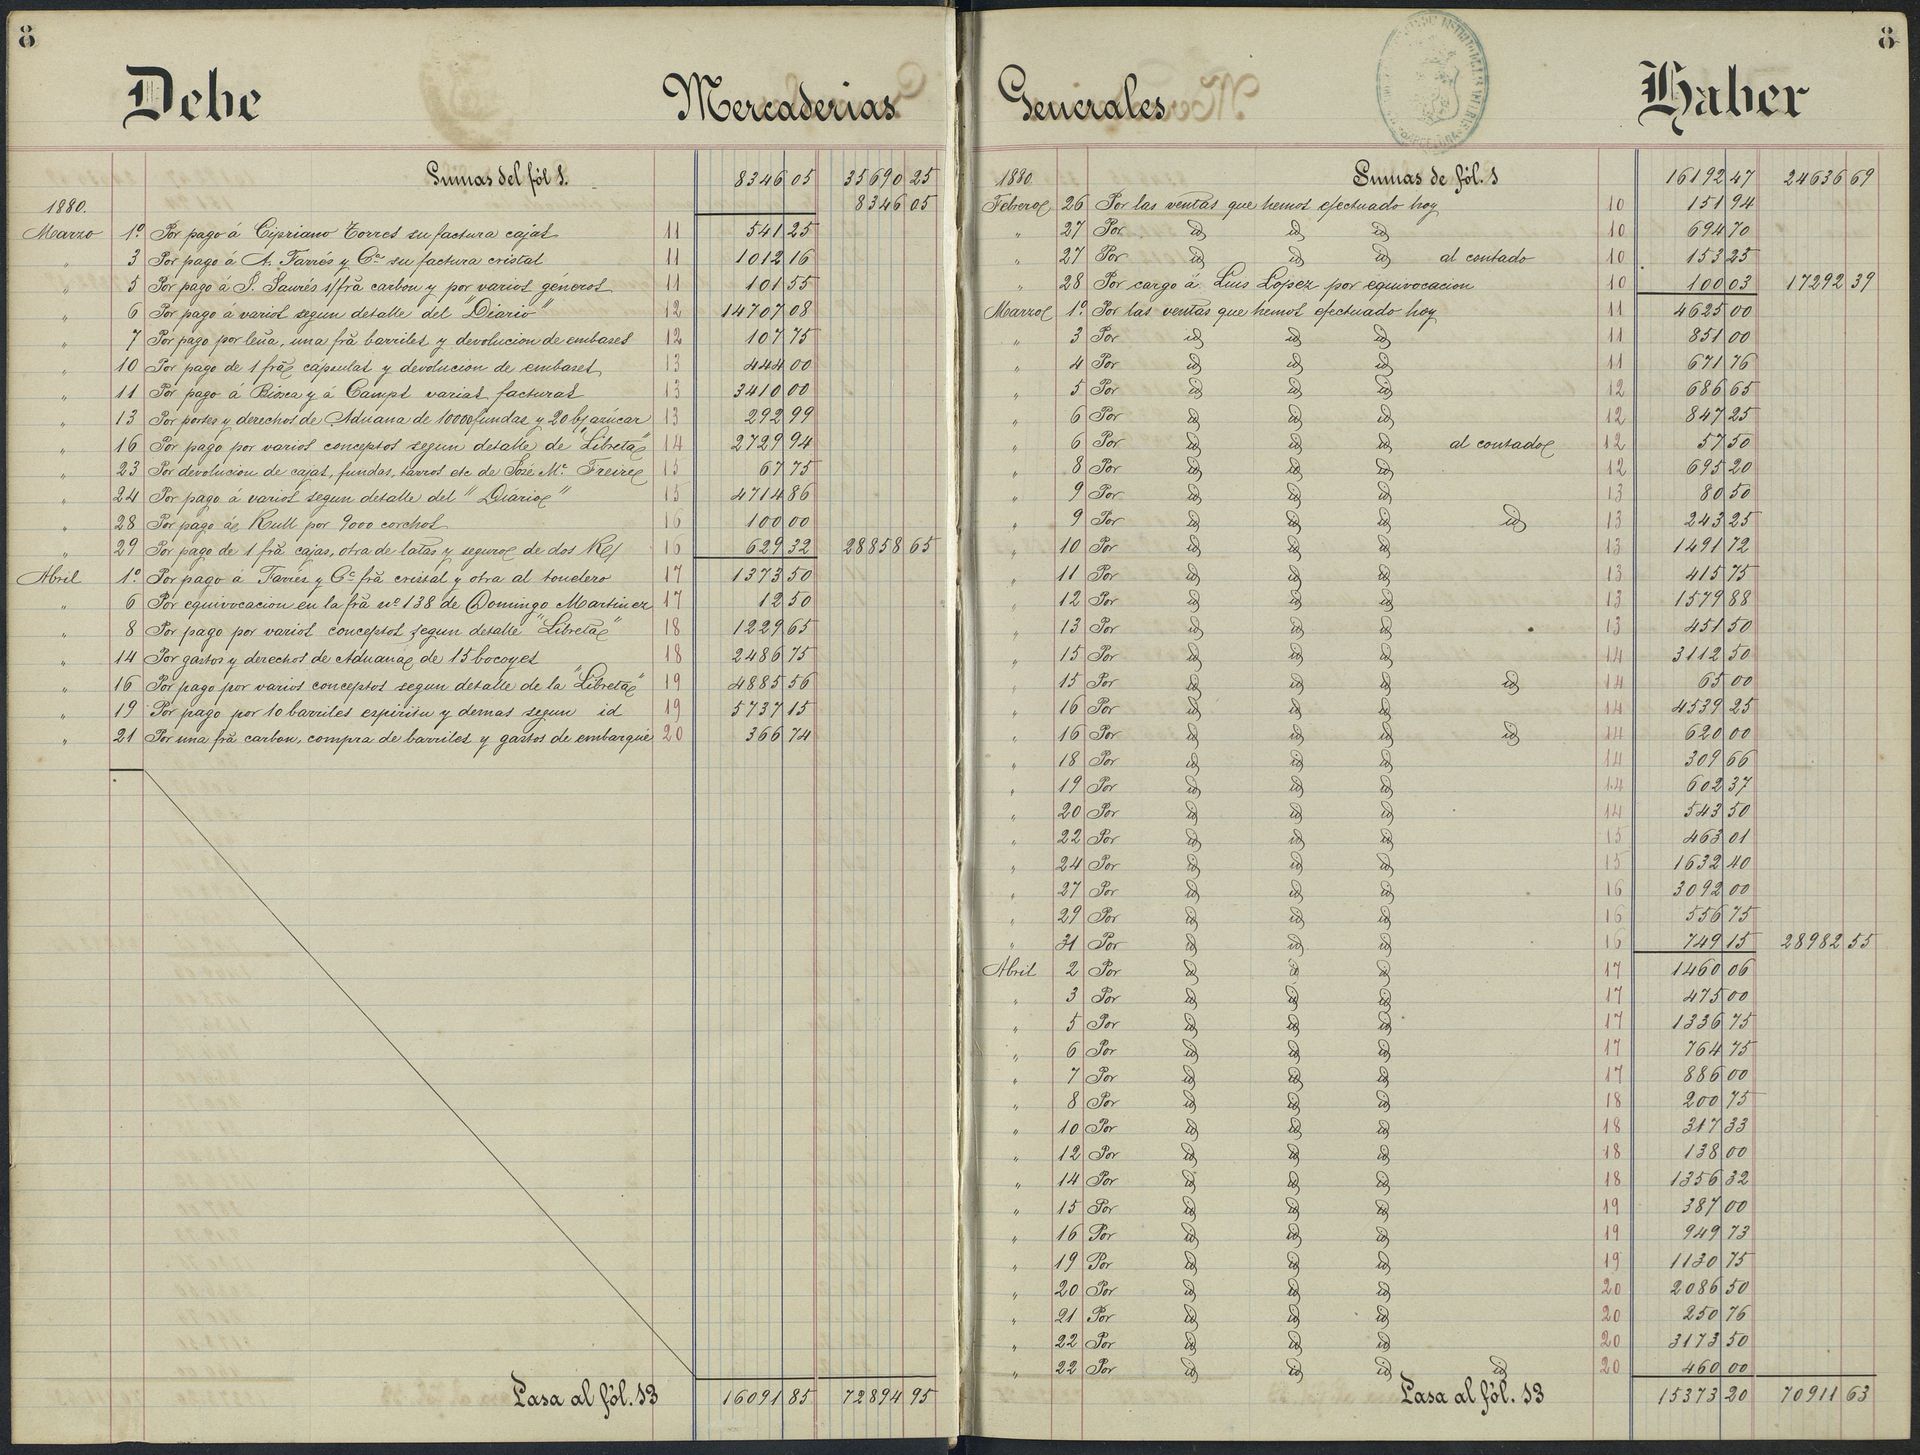 8
Debe Mercaderias
Sumas del fól 1. 8346 05 35690 25
1880. 8346 05
Marzo 1º Por pago á Cipriano Torres su factura cajas 11 541 25
" 3 Por pago á A. Farrés y Cª su factura cristal 11 1012 16
" 5 Por pago á S. Saurés s/frã carbon y por varios géneros 11 101 55
" 6 Por pago á varios segun detalle del "Diario" 12 14707 08
" 7 Por pago por leña, una frã barriles y devolucion de embases 12 107 75
" 10 Por pago de 1 frã capsulas y devolucion de embases 13 444 00
" 11 Por pago á Biosca y á Camps varias facturas 13 3410 00
" 13 Por portes y derechos de Aduana de 10000 fundas y 20 b/ azúcar 13 292 99
" 16 Por pago por varios conceptos segun detalle de "Libreta" 14 2729 94
" 23 Por devolucion de cajas, fundas, tarros etc de José Mª Freire 15 67 75
" 24 Por pago á varios segun detalle del "Diario" 15 4714 86
" 28 Por pago á Rull por 9000 corchos 16 100 00
" 29 Por pago de 1 frã cajas, otra de latas y seguro de dos Re/ 16 629 32 28858 65
Abril 1º Por pago á Farrés y Cª frã cristal y otra al tonelero 17 1373 50
" 6 Por equivocacion en la frã nº 138 de Domingo Martinez 17 12 50
" 8 Por pago por varios conceptos segun detalle "Libreta" 18 1229 65
" 14 Por gastos y derechos de Aduana de 15 bocoyes 18 2486 75
" 16 Por pago por varios conceptos segun detalle de la "Libreta" 19 4885 56
" 19 Por pago por 10 barriles espiritu y demas segun id 19 5737 15
" 21 Por una frã carbon, compra de barriles y gastos de embarque 20 366 74
Pasa al fól. 13 16091 85 72894 95
8
Generales Haber
1880. Sumas de fól. 1 16192 47 24636 69
Febrero 26 Por las ventas que hemos efectuado hoy 10 151 94
" 27 Por id id id 10 694 70
" 27 Por id id id al contado 10 153 25
" 28 Por cargo á Luis Lopez por equivocacion 10 100 03 17292 39
Marzo 1º Por las ventas que hemos efectuado hoy 11 4625 00
" 3 Por id id id 11 851 00
" 4 Por id id id 11 671 76
" 5 Por id id id 12 686 65
" 6 Por id id id 12 847 25
" 6 Por id id id al contado 12 57 50
" 8 Por id id id 12 695 20
" 9 Por id id id 13 80 50
" 9 Por id id id id 13 243 25
" 10 Por id id id 13 1491 72
" 11 Por id id id 13 415 75
" 12 Por id id id 13 1579 88
" 13 Por id id id 13 451 50
" 15 Por id id id 14 3112 50
" 15 Por id id id id 14 65 00
" 16 Por id id id 14 4539 25
" 16 Por id id id id 14 620 00
" 18 Por id id id 14 309 66
" 19 Por id id id 14 602 37
" 20 Por id id id 14 543 50
" 22 Por id id id 15 463 01
" 24 Por id id id 15 1632 40
" 27 Por id id id 16 3092 00
" 29 Por id id id 16 556 75
" 31 Por id id id 16 749 15 28982 55
Abril 2 Por id id id 17 1460 06
" 3 Por id id id 17 475 00
" 5 Por id id id 17 1336 75
" 6 Por id id id 17 764 75
" 7 Por id id id 17 886 00
" 8 Por id id id 18 200 75
" 10 Por id id id 18 317 33
" 12 Por id id id 18 138 00
" 14 Por id id id 18 1356 32
" 15 Por id id id 19 387 00
" 16 Por id id id 19 949 73
" 19 Por id id id 19 1130 75
" 20 Por id id id 20 2086 50
" 21 Por id id id 20 250 76
" 22 Por id id id 20 3173 50
" 22 Por id id id id 20 460 00
Pasa al fól. 13 15373 20 70911 63